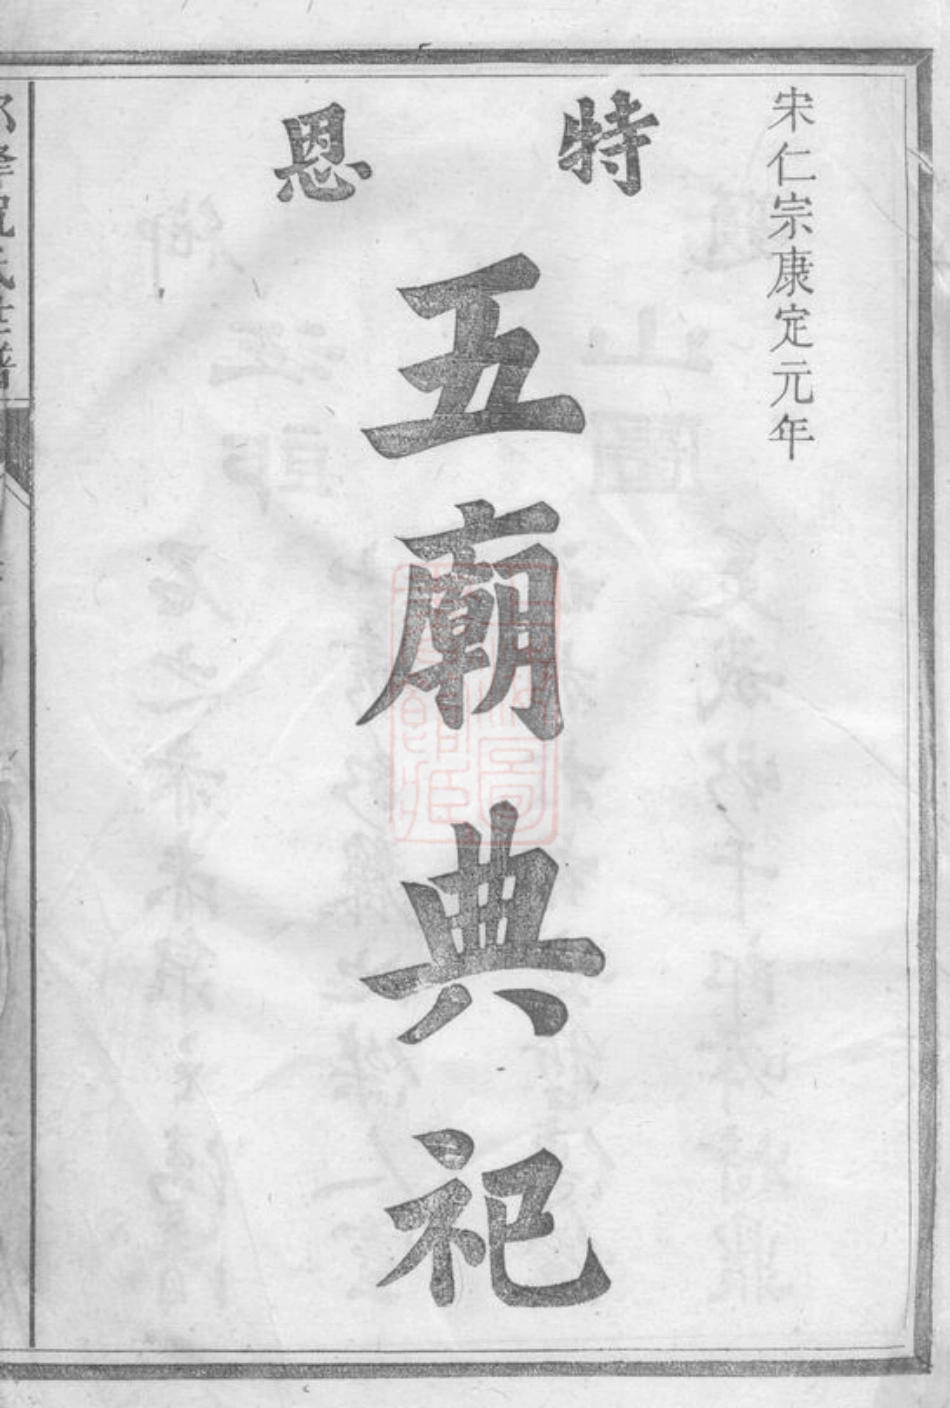 宋仁宗康定元年
特恩
五廟典祀